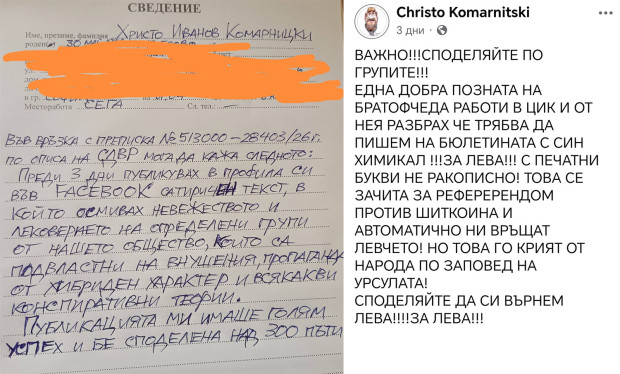 СВЕДЕНИЕ
Име, презиме, фамилия ХРИСТО ИВАНОВ КОМАРНИЦКИ
роден 30
в гр.
СЕГА Сл. тел.
ВЪВ ВРЪЗКА С ПРЕПИСКА № 513000-28403/26г.
ПО ОПИСА НА СДВР МОГА ДА КАЖА СЛЕДНОТО:
ПРЕДИ 3 ДНИ ПУБЛИКУВАХ В ПРОФИЛА СИ
ВЪВ FACEBOOK САТИРИЧЕН ТЕКСТ, В
КОЙТО ОСМИВАХ НЕВЕЖЕСТВОТО И
ЛЕКОВЕРИЕТО НА ОПРЕДЕЛЕНИ ГРУПИ
ОТ НАШЕТО ОБЩЕСТВО, КОИТО СА
ПОДВЛАСТНИ НА ВНУШЕНИЯ, ПРОПАГАНДА
ОТ ХИБРИДЕН ХАРАКТЕР И ВСЯКАКВИ
КОНСПИРАТИВНИ ТЕОРИИ.
ПУБЛИКАЦИЯТА МИ ИМАШЕ ГОЛЯМ
УСПЕХ И БЕ СПОДЕЛЕНА НАД 300 ПЪТИ
Christo Komarnitski
3 дни ·
ВАЖНО!!!СПОДЕЛЯЙТЕ ПО
ГРУПИТЕ!!!
ЕДНА ДОБРА ПОЗНАТА НА
БРАТОФЧЕДА РАБОТИ В ЦИК И ОТ
НЕЯ РАЗБРАХ ЧЕ ТРЯБВА ДА
ПИШЕМ НА БЮЛЕТИНАТА С СИН
ХИМИКАЛ !!!ЗА ЛЕВА!!! С ПЕЧАТНИ
БУКВИ НЕ РАКОПИСНО! ТОВА СЕ
ЗАЧИТА ЗА РЕФЕРЕРЕНДОМ
ПРОТИВ ШИТКОИНА И
АВТОМАТИЧНО НИ ВРЪЩАТ
ЛЕВЧЕТО! НО ТОВА ГО КРИЯТ ОТ
НАРОДА ПО ЗАПОВЕД НА
УРСУЛАТА!
СПОДЕЛЯЙТЕ ДА СИ ВЪРНЕМ
ЛЕВА!!!!ЗА ЛЕВА!!!